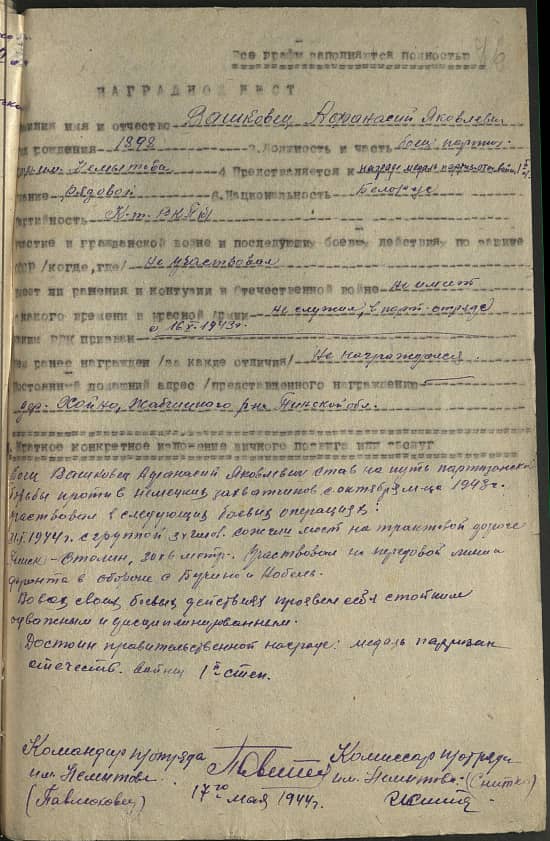 Все графы заполняются полностью
НАГРАДНОЙ ЛИСТ
имя и отчество Вашковец Афанасий Яковлевич
рождения 1898 2. Должность и часть боец партиз.
4 Представляется к
Рядовой 6. Национальность Белорус
К-т ВКП(б)
и гражданской войне и последующих боевых действиях по защите
СССР /когда, где/ Не участвовал
ли ранения и контузии в Отечественной войне Не имеет
какого времени в Красной Армии Не служил, в парт. отряде
РВК призван с 1943г.
ранее награжден /за какие отличия/ Не награждался
Постоянный домашний адрес /представленного к награждению
дер. Хойно, Жабчицкого р-на Пинской обл.
Краткое конкретное изложение личного подвига или заслуг
Боец Вашковец Афанасий Яковлевич стал на путь партизанской
борьбы против немецких захватчиков с октября м-ца 1943г.
Участвовал в следующих боевых операциях:
1944г. с группой сожгли мост на трактовой дороге
Пинск-Столин, метр. Участвовал на передовой линии
фронта в обороне с и Нобель.
Во всех своих боевых действиях проявил себя стойким
отважным и дисциплинированным.
Достоин правительственной награде: медаль партизан
отечеств. войны 1й степ.
Командир п/отряда Комиссар п/отряда
им. им.
(Павлюковец) (Снитко)
17го мая 1944г.